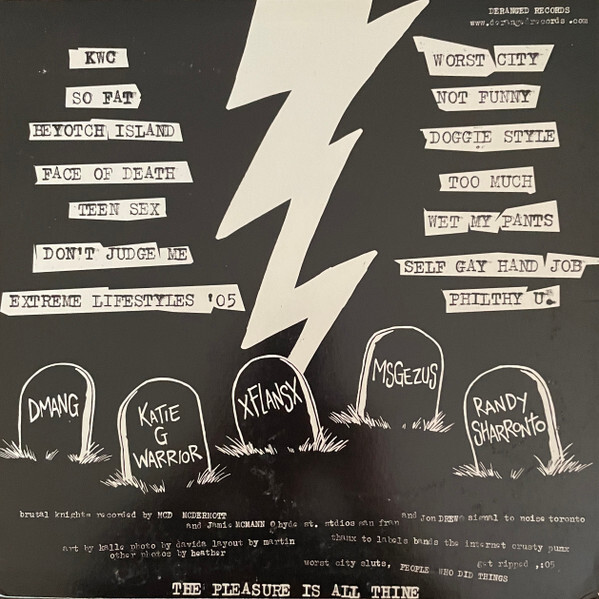 DERANGED RECORDS
www.derangedrecords.com
KWC
SO FAT
BEYOTCH ISLAND
FACE OF DEATH
TEEN SEX
DON'T JUDGE ME
EXTREME LIFESTYLES '05
WORST CITY
NOT FUNNY
DOGGIE STYLE
TOO MUCH
WET MY PANTS
SELF GAY HAND JOB
PHILTHY U.
DMANG
KATIE
G
WARRIOR
XFLANSX
MSGEZUS
RANDY
SHARRONTO
brutal knights recorded by MCD MCDERMOTT
and Jamie MCMANN @hyde st. stdios san fran
and Jon DREW@ signal to noise toronto
art by kalle photo by davida layout by martin
other photos by heather
thanx to labels bands the internet crusty punx
worst city sluts, PEOPLE WHO DID THINGS
get ripped ,:05
THE PLEASURE IS ALL THINE